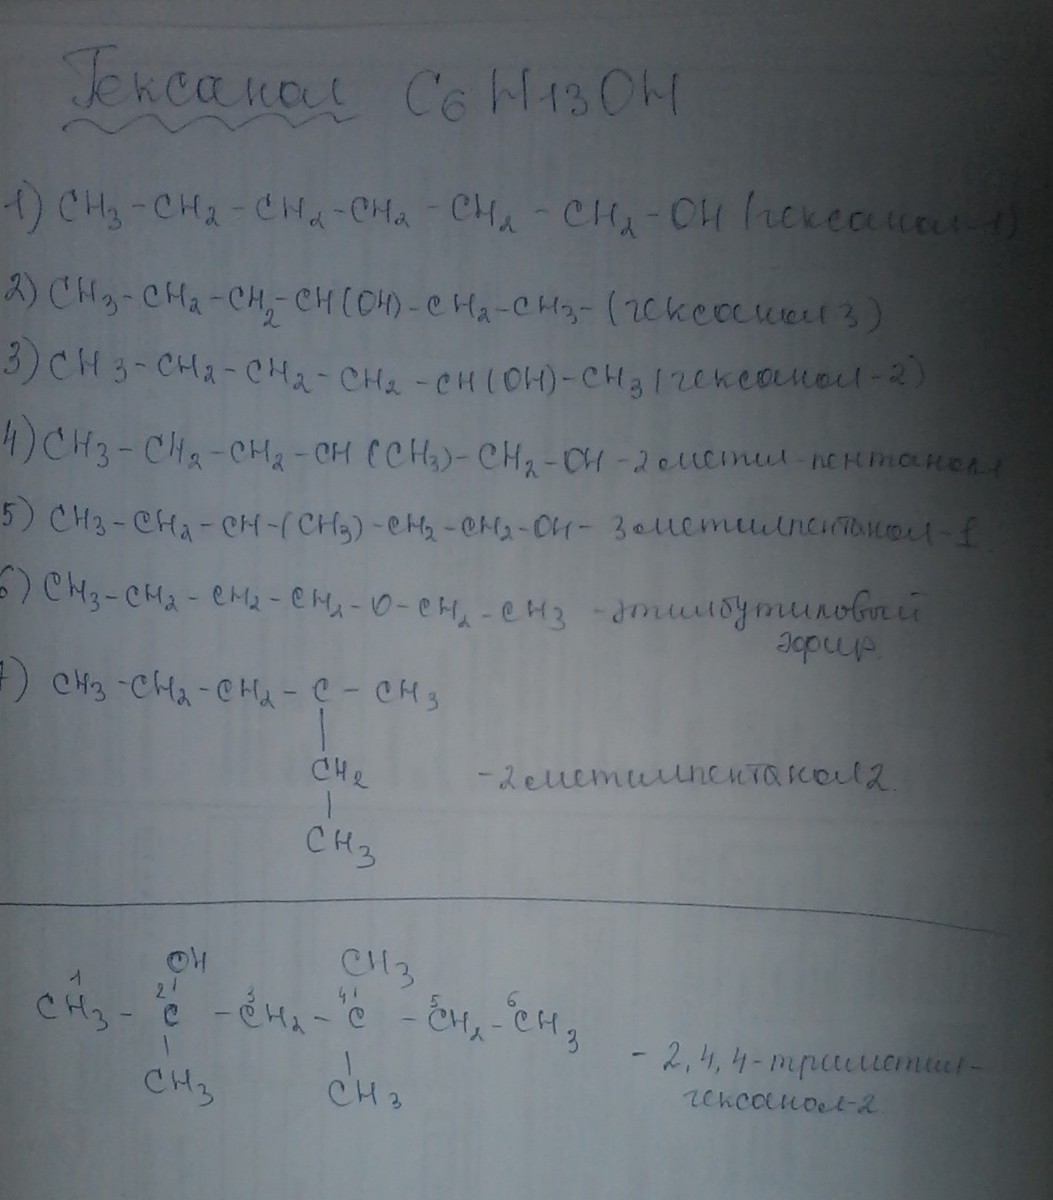 Гексанол C6H13OH
1) CH3-CH2-CH2-CH2-CH2-CH2-OH (гексанол-1)
2) CH3-CH2-CH2-CH(OH)-CH2-CH3-(гексанол 3)
3) CH3-CH2-CH2-CH2-CH(OH)-CH3 (гексанол-2)
4) CH3-CH2-CH2-CH(CH3)-CH2-OH-2метил-пентанол1
5) CH3-CH2-CH-(CH3)-CH2-CH2-OH-3метилпентанол-1
6) CH3-CH2-CH2-CH2-O-CH2-CH3 -этилбутиловый
эфир.
7) CH3-CH2-CH2-C-CH3
CH2 -2метилпентанол2.
CH3
OH CH3
1 2 3 4 5 6
CH3-C-CH2-C-CH2-CH3
CH3 CH3 - 2,4,4-триметил-
гексанол-2